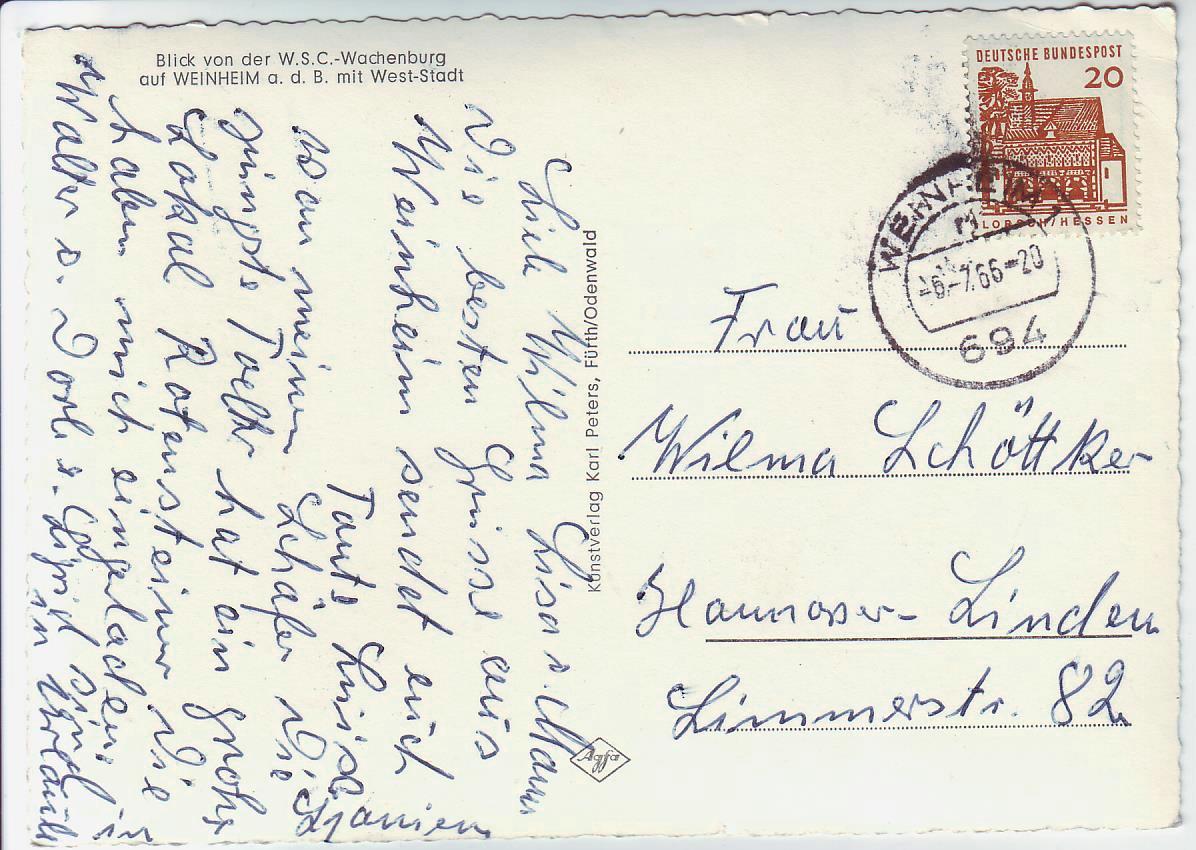 Blick von der W.S.C.-Wachenburg
auf WEINHEIM a. d. B. mit West-Stadt
Liebe Wilma Lisa u. Mann
Die besten Grüsse aus
Weinheim sendet euch
Tante Luise
war meinen Schäfer die
jüngste Tochter hat ein grohs
Lokal Rotenstein die
haben mich eingeladen
Walter u. Dorle u. Sigrid sind in Urlaub
in Spanien
Kunstverlag Karl Peters, Fürth/Odenwald
Agfa
DEUTSCHE BUNDESPOST
20
LORSCH/HESSEN
WEINHEIM
-6.-7.66-20
694
Frau
Wilma Schöttker
Hannover-Linden
Limmerstr. 82